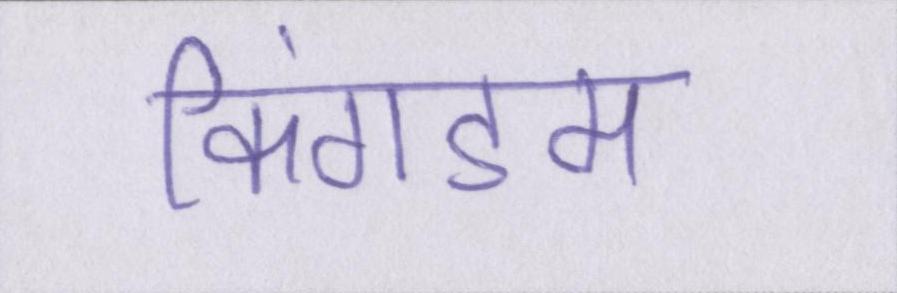 किंगडम